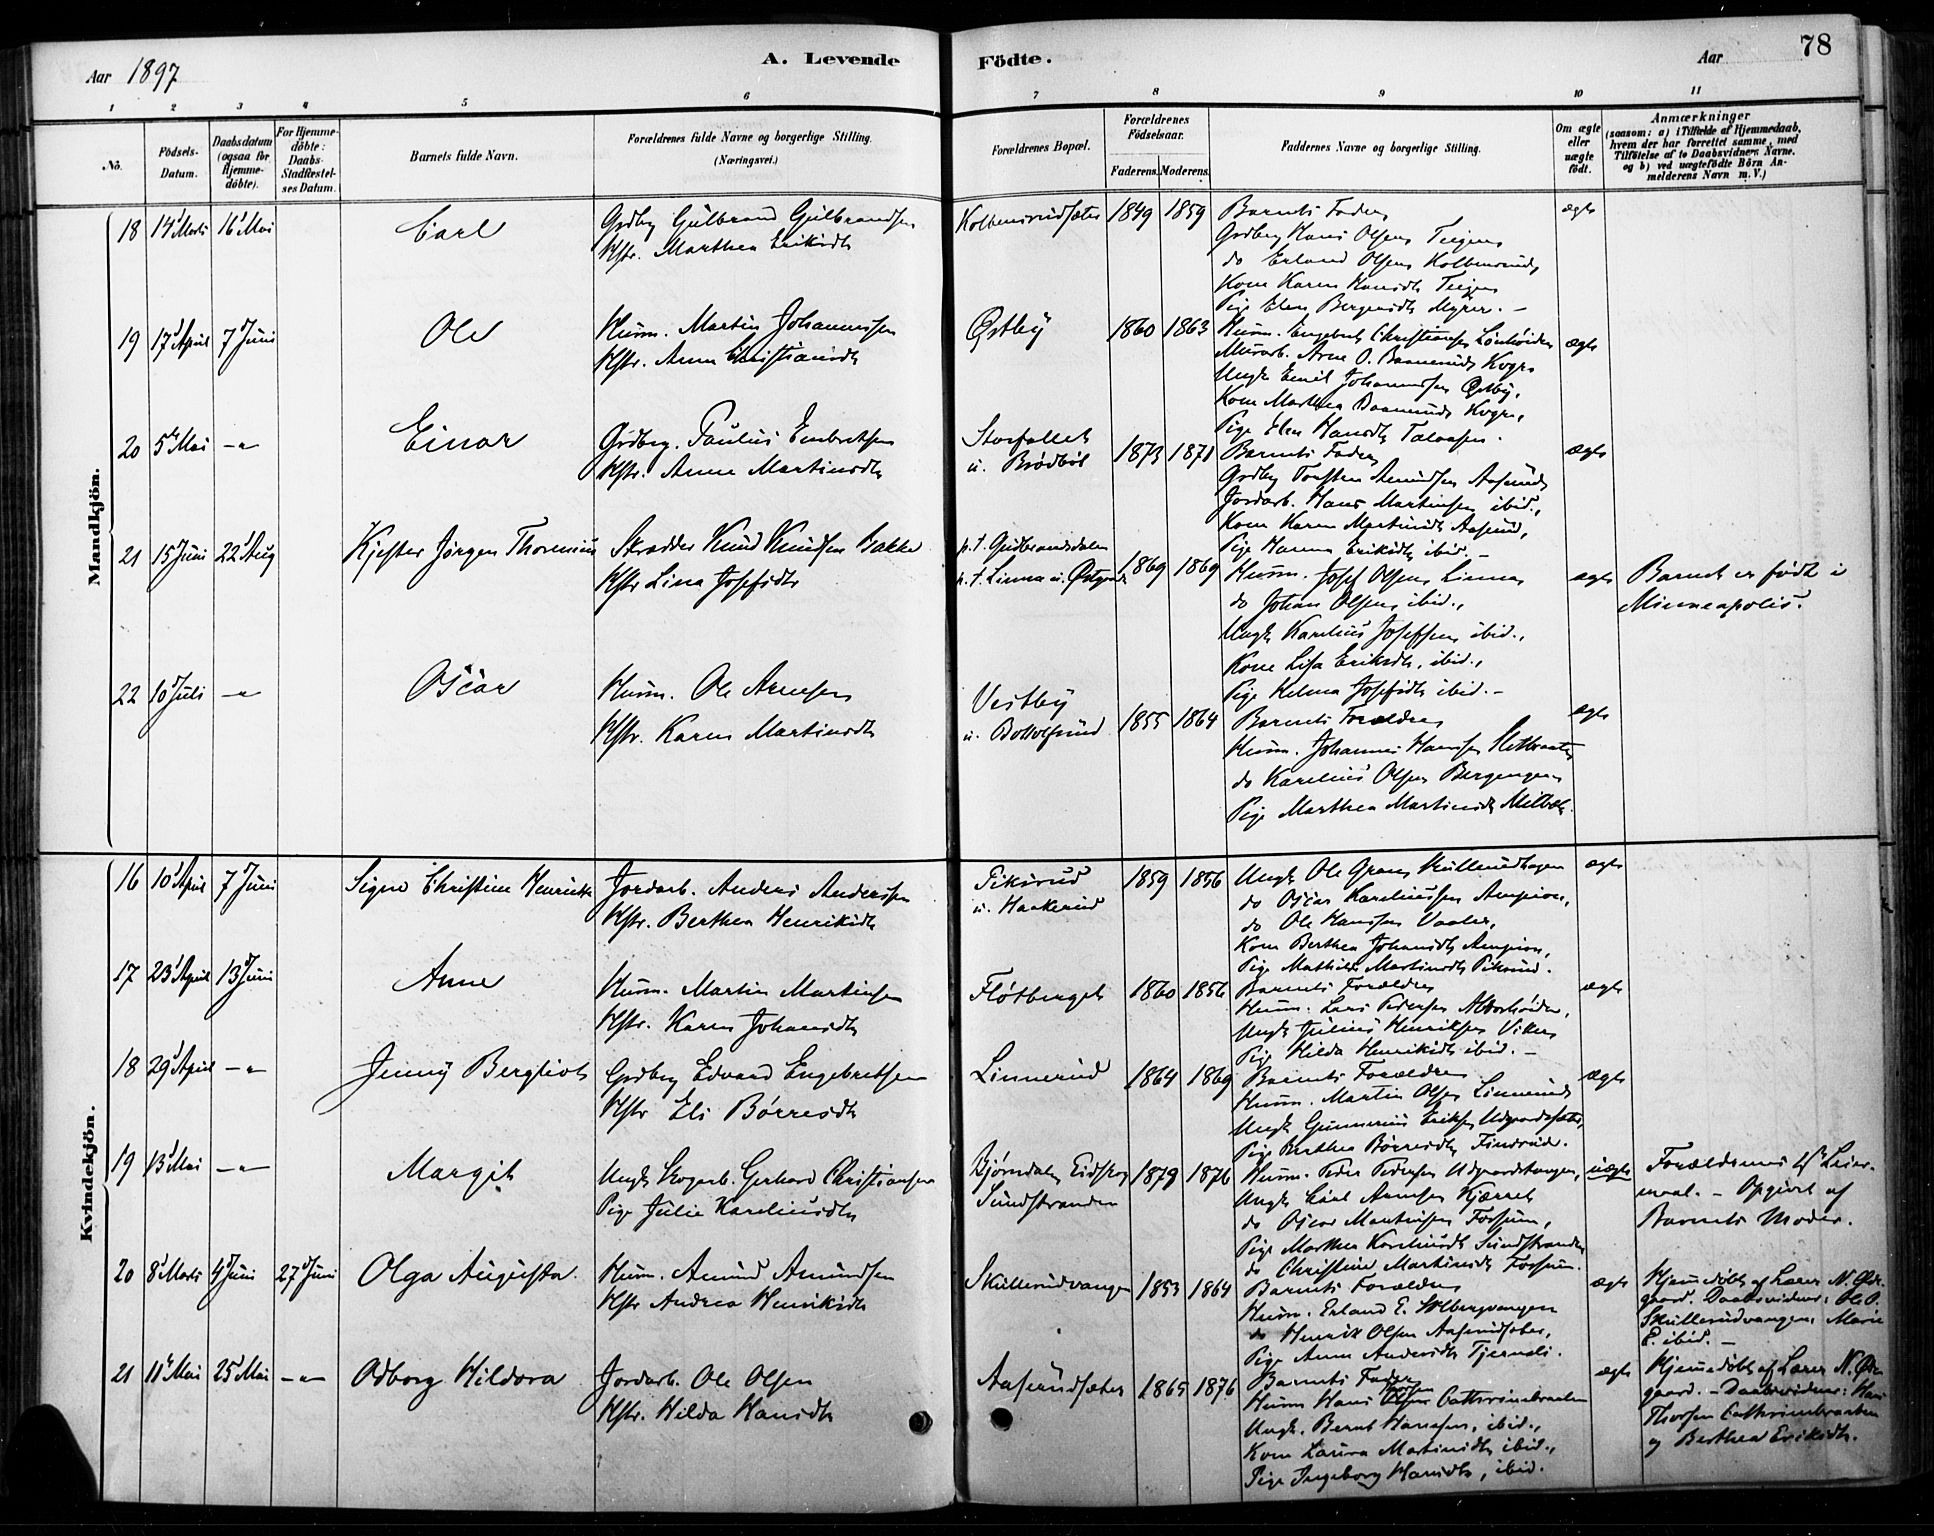 Aar 1897
A. Levende
Födte.
Aar
78
1 2 3 4 5 6 7 8 9 10 11
No.
Födsels-Datum.
Daabsdatum (ogsaa for Hjemme-döbte).
For Hjemme-döbte: Daabs-Stadfæstel-ses Datum.
Barnets fulde Navn.
Forældrenes fulde Navne og borgerlige Stilling.
(Næringsvei.)
Forældrenes Bopæl.
Forældrenes Födselsaar.
Faderens. Moderens.
Faddernes Navne og borgerlige Stilling.
Om ægte eller uægte födt.
Anmærkninger
(saasom: a) i Tilfælde af Hjemmedaab,
hvem der har forrettet samme, med
Tilföielse af to Daabsvidners Navne,
og b) ved uægtefödte Börn An-
melderens Navn m. V.)
Mandkjön.
18 14 Marts 16 Mai Carl Grdbrg Gulbrand Gulbrandsen
Hstr. Marthea Eriksdtr
Kolbensrudsæter 1849 1859 Barnets Fader
Grdbrg Hans Olsen Teigen
do Erland Olsen Kolbensrud,
Kone Karen Hansdtr Teigen
Pige Elen Bergersdtr Myrer. –
ægte
19 17 April 7 Juni Ole Husm. Martin Johannessen
Hstr. Anne Christiansdtr
Østby 1860 1863 Husm. Engebret Christiansen
Murarb. Arne O. Kogre
Ungk Emil Johannessen Østby,
Kone Marthea Kogre,
Pige Elen Hansdtr
ægte
20 5te Mai –"– Einar Grdbrg. Paulus Embretsen
Hstr. Anne Martinsdtr
Storfallet
u. Brødbøl 1873 1871 Barnets Fader
Grdbrg Torsten Amundsen Aaserud
Jordarb. Hans Martinsen ibid.,
Kone Karen Martinsdtr Aaserud,
Pige Hanna Eriksdtr ibid. –
ægte
21 15 Juni 22 Aug Kjester Jørgen Thorenius Skrædder Knud Knudsen Bakke
Hstr Lina Josefsdtr
p.t. Gudbrandsdalen
p.t. Linna u. Østgaard 1869 1869 Husm. Josef Olsen Linna
do Johan Olsen ibid.,
Ungk Karelius Josefsen ibid.,
Kone Lisa Eriksdtr, ibid.,
Pige Helma Josefsdtr ibid. –
ægte Barnet er født i
Minneapolis.
22 10 Juli –"– Oscar Husm. Ole Arnesen
Hstr. Karen Martinsdtr
Vestby
u. Bottolfsrud 1855 1864 Barnets Forældre
Husm. Johannes Hansen
do Karelius Olsen Bergengen
Pige Marthea Martinsdtr
ægte
Kvindekjön.
16 10 April 7 Juni Signe Christine Henriette Jordarb. Anders Andersen
Hstr. Berthea Henriksdtr
Piksrud
u. Haakerud 1859 1856 Ungk Ole Skullerudhagen
do Oscar Kareliussen
do Ole Hansen Vaaler,
Kone Berthea Johansdtr
Pige Mathilde Martinsdtr Piksrud.
ægte
17 23 April 13 Juni Anne Husm. Martin Martinsen
Hstr. Karen Johansdtr
Fløtberget 1860 1856 Barnets Forældre
Husm. Lars Pedersen
Ungk Julius Henriksen Viker
Pige Hilda Henriksdtr ibid. –
ægte
18 29 April –"– Jenny Bergliot Grdbrg Edvard Engebretsen
Hstr Eli Børresdtr
Linnerud 1864 1869 Barnets Forældre
Husm. Martin Olsen Linnerud
Ungk Gunnerius Eriksen Udgaardsæter,
Pige Berthea Børresdtr Findsrud.
ægte
19 13 Mai –"– Margit Ungk Skogarb. Gerhard Christiansen
Pige Julie Kareliusdtr
Bjørndalen Eidskog
Sundstranden 1879 1876 Husm. Peder Pedersen Udgaardshaugen,
Ungk Carl Arnesen Kjærret
do Oscar Martinsen Fossum,
Pige Marthea Kareliusdtr Sundstranden
do Christine Martinsdtr Fossum.
uægte Forældrenes 1ste Leier-
maal. – Opgivet af
Barnets Moder.
20 8 Marts 4 Juni 27 Juni Olga Augusta. Husm. Amund Amundsen
Hstr Andrea Henriksdtr
Skullerudvangen 1853 1864 Barnets Forældre
Husm. Erland E. Solbergvangen
do Henrik Olsen Aaserudsæter,
Pige Anne Andersdtr Tjernsli.
ægte Hjemmedøbt af Lærer N. Øde-
gaard. Daabsvidner: Ole O.
Skullerudvangen, Marie
E. ibid. –
21 11te Mai 25 Mai –"– Odborg Hildora Jordarb. Ole Olsen
Hstr. Hilda Hansdtr
Aaserudsæter 1865 1876 Barnets Fader
Husm Hans Thorsen Cathrinebraaten
Ungk. Bernt Hansen, ibid.,
Kone Laura Martinsdtr ibid.,
Pige Ingeborg Hansdtr, ibid.
ægte Hjemmedøbt af Lærer N. Øde-
gaard. – Daabsvidner: Hans
Thorsen Cathrinebraaten
og Berthea Eriksdtr.